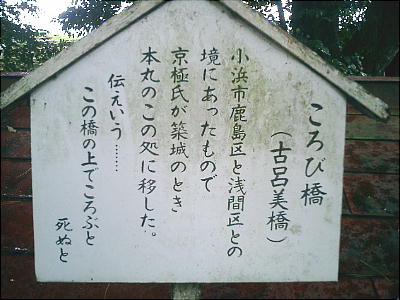 ころび橋
（古呂美橋）
小浜市鹿島区と浅間区との
境にあったもので
京極氏が築城のとき
本丸のこの処に移した。
伝えいう……
この橋の上でころぶと
死ぬと